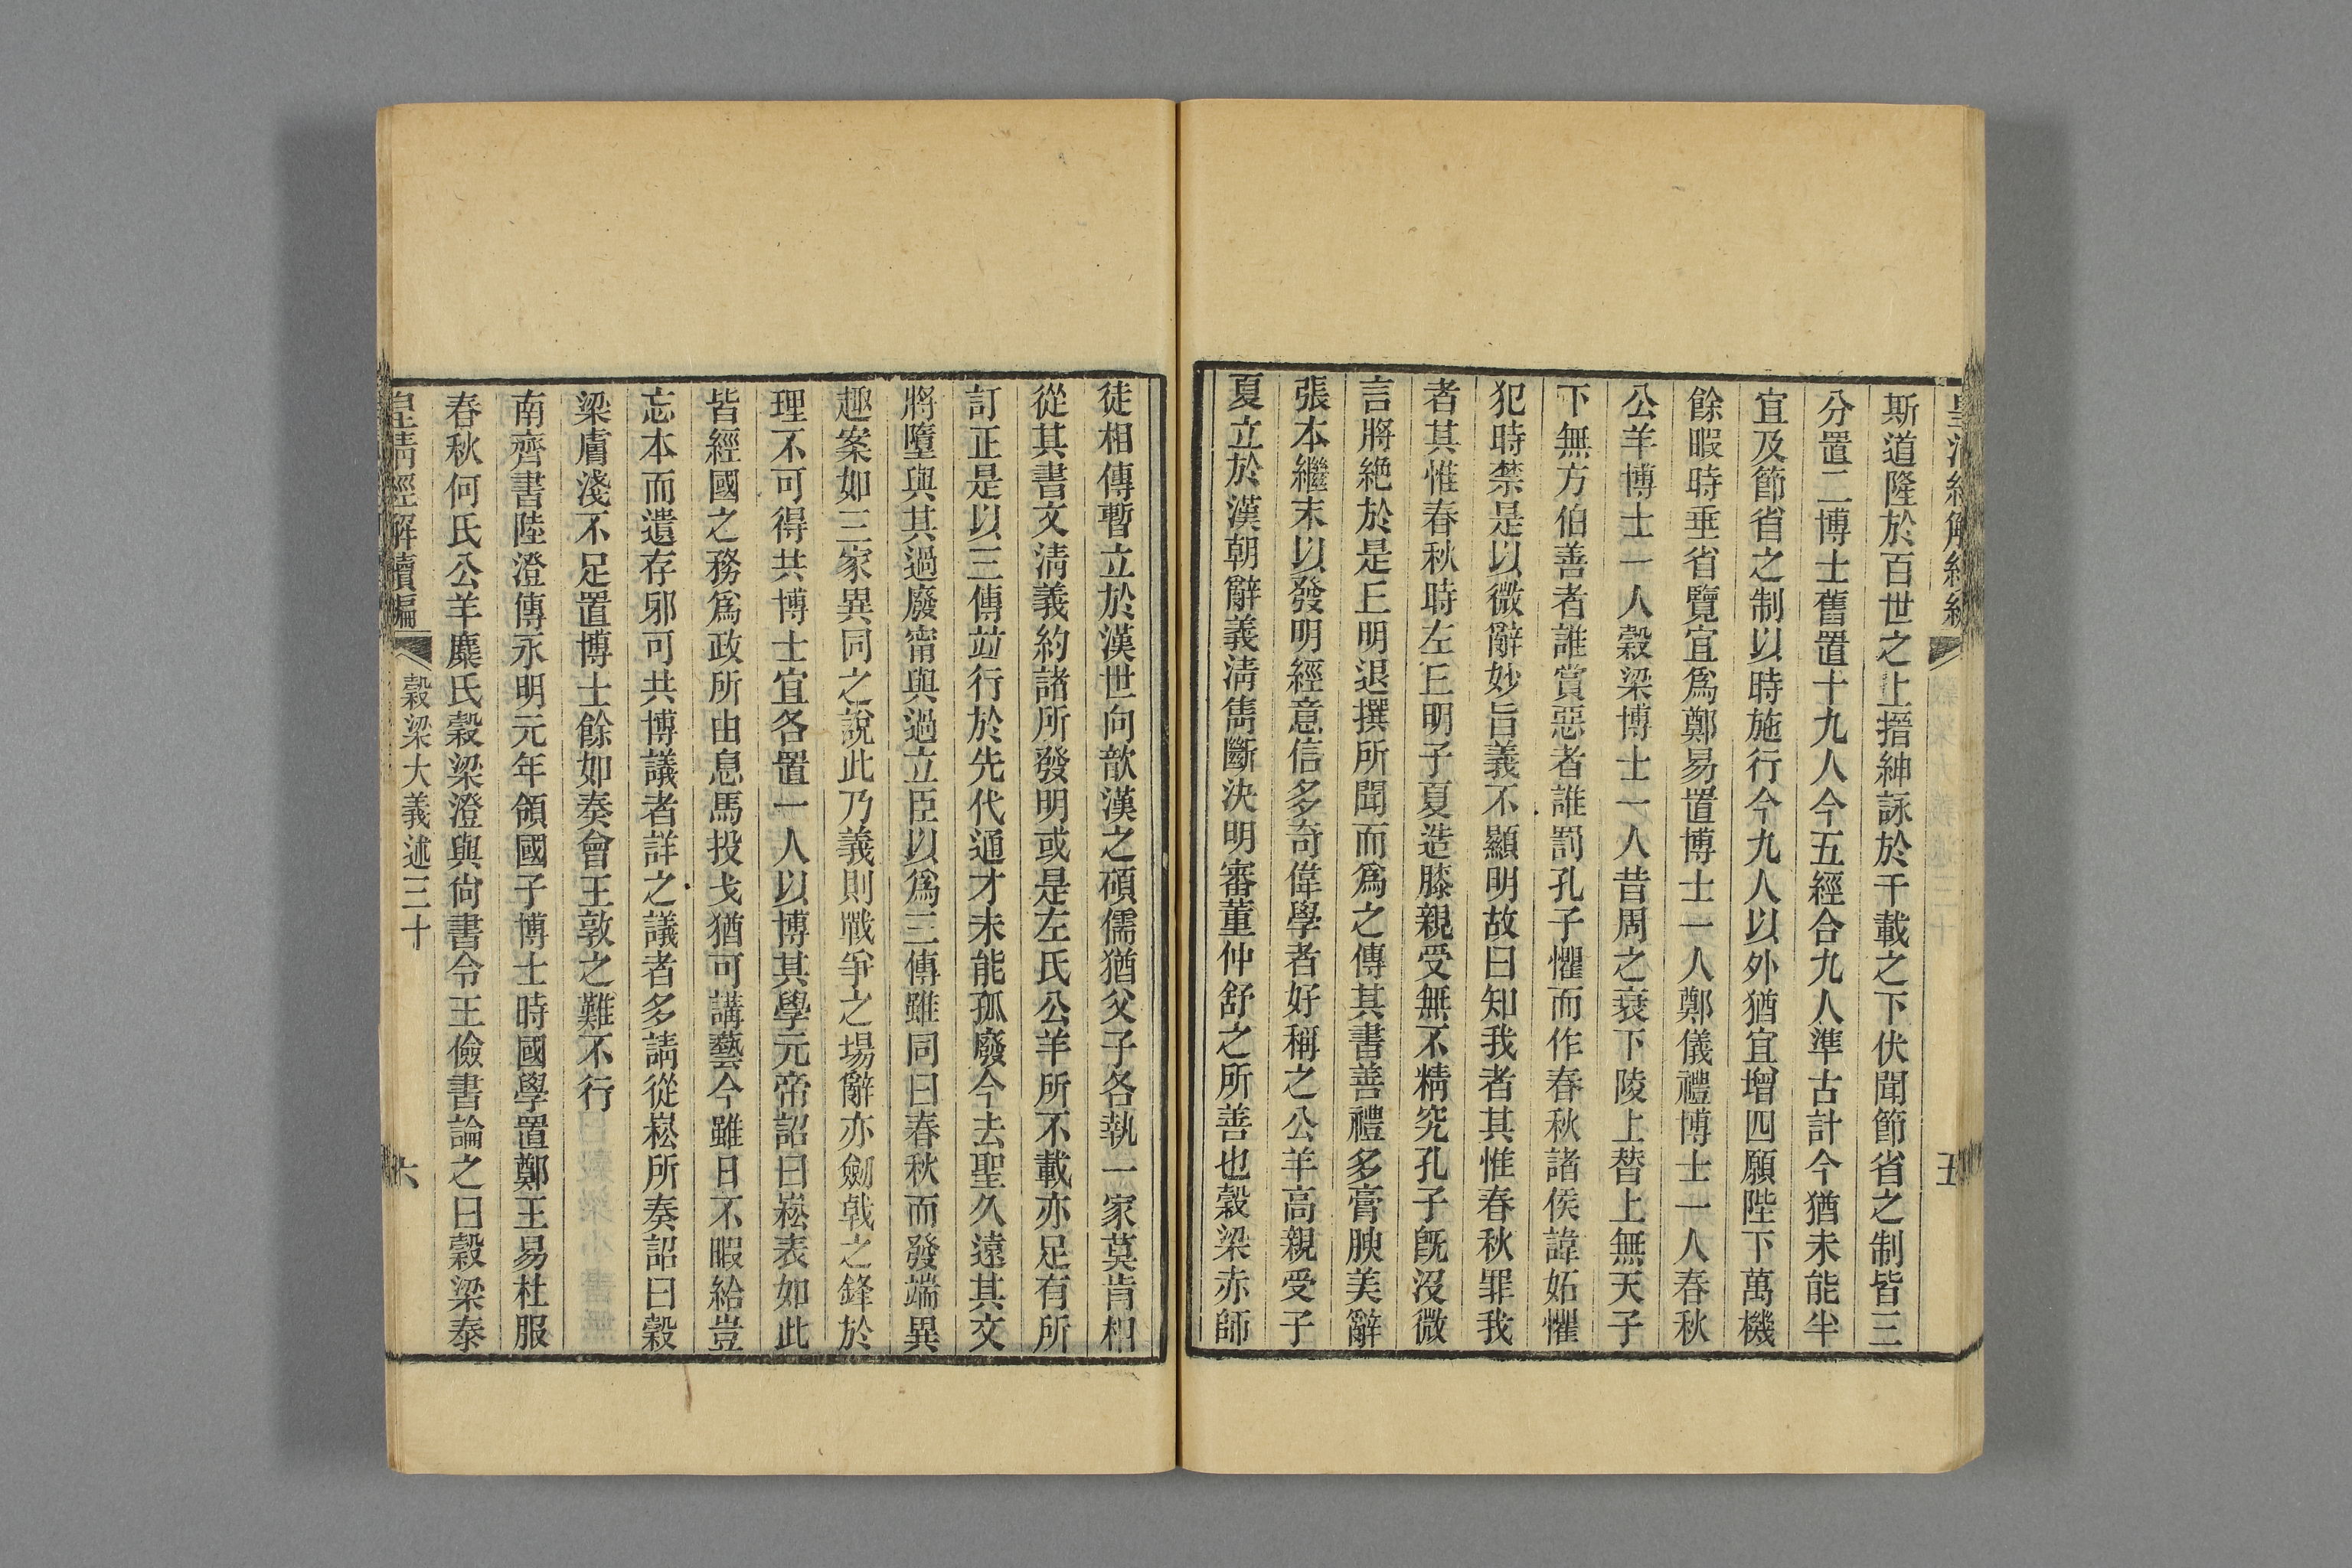 斯道隆於百世之上搢紳詠於千載之下伏聞節省之制皆三
分置二博士舊置十九人今五經合九人準古計今猶未能半
宜及節省之制以時施行今九人以外猶宜增四願陛下萬機
餘暇時垂省覽宜爲鄭易置博士一人鄭儀禮博士一人春秋
公羊博士一人穀梁博士一人昔周之衰下陵上替上無天子
下無方伯善者誰賞惡者誰罰孔子懼而作春秋諸侯諱妬懼
犯時禁是以微辭妙旨義不顯明故曰知我者其惟春秋罪我
者其惟春秋時左丘明子夏造膝親受無不精究孔子旣沒微
言將絕於是丘明退撰所聞而爲之傳其書善禮多膏腴美辭
張本繼末以發明經意信多奇偉學者好稱之公羊高親受子
夏立於漢朝辭義淸雋斷決明審董仲舒之所善也穀梁赤師
五
徒相傳暫立於漢世向歆漢之碩儒猶父子各執一家莫肯相
從其書文淸義約諸所發明或是左氏公羊所不載亦足有所
訂正是以三傳竝行於先代通才未能孤廢今去聖久遠其文
將墮與其過廢甯與過立臣以爲三傳雖同曰春秋而發端異
趣案如三家異同之說此乃義則戰爭之場辭亦劒戟之鋒於
理不可得共博士宜各置一人以博其學元帝詔曰崧表如此
皆經國之務爲政所由息馬投戈猶可講藝今雖日不暇給豈
忘本而遺存邪可共博議者詳之議者多請從崧所奏詔曰穀
梁膚淺不足置博士餘如奏會王敦之難不行
南齊書陸澄傳永明元年領國子博士時國學置鄭王易杜服
春秋何氏公羊麋氏穀梁澄與尙書令王儉書論之曰穀梁泰
皇淸經解續編
穀梁大義述三十
六